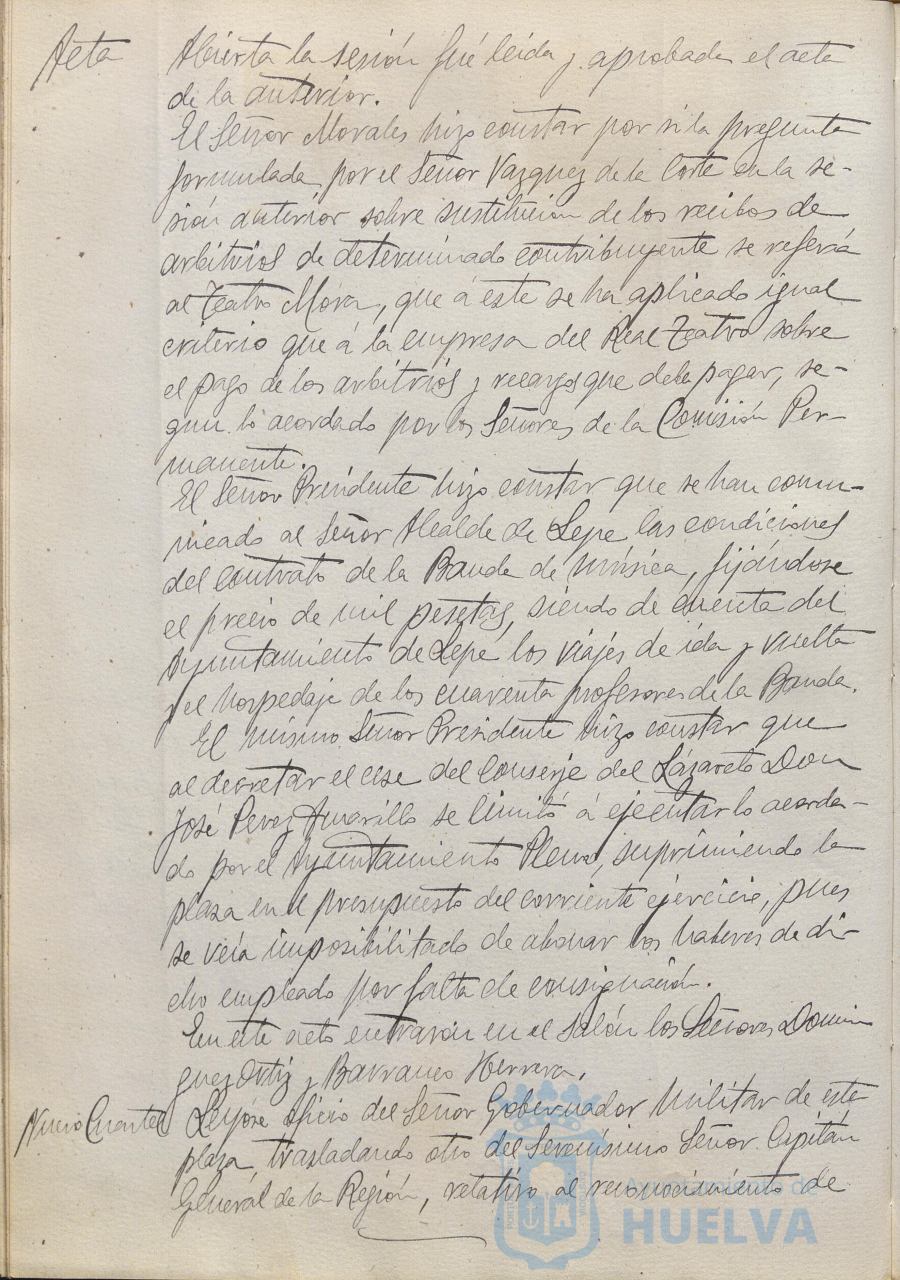 Acta
Abierta la sesión fué leida y aprobada el acta
de la anterior.
El Señor Morales hizo constar por si la pregunta
formulada por el Señor Vazquez de la Corte en la se-
sión anterior sobre sustitución de los recibos de
arbitrios de determinado contribuyente se referia
al Teatro Mora, que á este se ha aplicado igual
criterio que á la empresa del Real Teatro sobre
el pago de los arbitrios y recargos que debe pagar, se-
gun lo acordado por los Señores de la Comisión Per-
manente.
El Señor Presidente hizo constar que se han comu-
nicado al Señor Alcalde de Lepe las condiciones
del contrato de la Banda de música, fijándose
el precio de mil pesetas, siendo de cuenta del
Ayuntamiento de Lepe los viajes de ida y vuelta
y el hospedaje de los cuarenta profesores de la Banda.
El mismo Señor Presidente hizo constar que
al decretar el cese del Conserje del Lázareto Don
José Perez Amarillo se limitó á ejecutar lo acorda-
do por el Ayuntamiento Pleno, suprimiendo la
plaza en el presupuesto del corriente ejercicio, pues
se veia imposibilitado de abonar los haberes de di-
cho empleado por falta de consignación.
En este acto entraron en el Salón los Señores Domin
guez Ortiz y Barranco Herrera.
Nuevo Cuartel
Leyóse oficio del Señor Gobernador Militar de esta
plaza trasladando otro del Serenísimo Señor Capitán
General de la Región, relativo al reconocimiento de
Ayuntamiento de
HUELVA